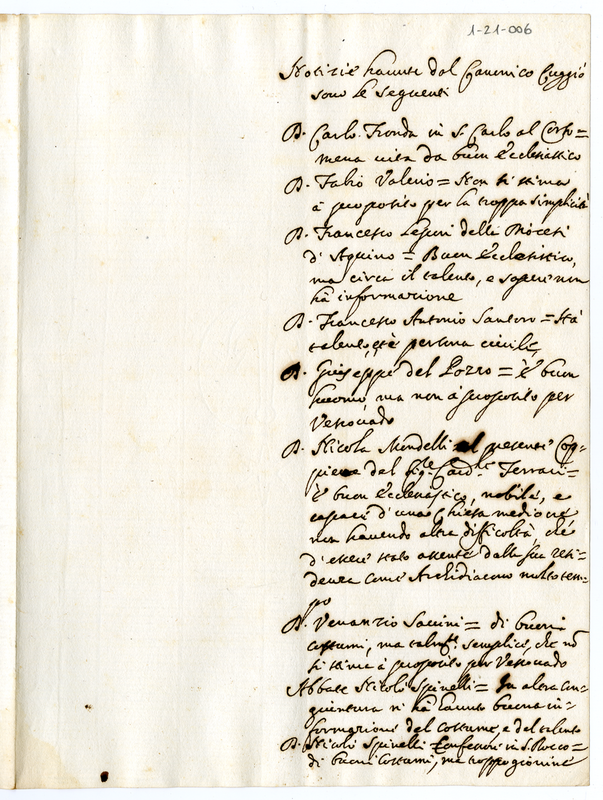 1-21-006
Notizie havute dal Canonico Cuggiò
sono le seguenti
D. Carlo Fronda in S. Carlo al Corso =
mena vita da buon Ecclesiastico
D. Fabio Valerio = Non si stima
à proposito per la troppa simplicità
D. Francesco delle Diocesi
d'Aquino = Buon Ecclesiastico,
ma circa il talento, e sapere non
hà informazione
D. Francesco Antonio Santoro = Hà
talento, et è persona civile,
D. Giuseppe del Pozzo = è buon
huomo, ma non à proposito per
Vescovado
D. Nicola Mondelli al presente Cop-
piere del Sig.re Card.le Ferrari =
è buon Ecclesiastico, nobile, e
capace d'una Chiesa mediocre
non havendo altra difficoltà, che
d'essere stato assente dalla sua resi-
denza come Archidiacono molto tem-
po
D. Venanzio Saccini = di buoni
costumi, ma semplice, che nõ
si stima à proposito per Vescovado
Abbate Nicolò Spinelli = In altra con-
giuntura si hà havuto buona in-
formazione del costume, e del talento
D. Nicolò Spinelli Confessore in S. Rocco =
di buoni costumi, ma troppo giovine